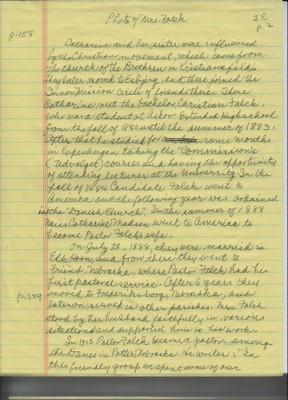 Photo of Mrs. Falck
p. 158
Catharine and her sister were influenced
by the Christian movement, which came from
the Church of the Brethren in Christiansfeld.
They later moved to Esbjerg, and there joined the
Inner Mission circle of friends there. There
Catharine met the bachelor, Christian Falck,
who was a student at Askov Extended Highschool
from the fall of 1882 until the summer of 1883.
After that he studied for some months
in Copenhagen taking the "Commission's
(Udvalget) courses and having the opportunity
of attending lectures at the University. In the
fall of 1884 Candidate Falck went to
America and the following year was ordained
in the "Danish Church". In the summer of 1888
Miss Catharine Madsen went to America to
become Pastor Falck's wife.
On July 28, 1888, they were married in
Elk Horn, and from there they went to
Friend, Nebraska, where Pastor Falck had his
first pastoral service. After 6 years they
p. 159
moved to Fredericksborg, Nebraska, and
later on served in other parishes. Mrs. Falck
stood by her husband faithfully in various
situations and supported him in his work.
In 1915 Pastor Falck became a pastor among
the Danes in Potter, Nebraska. He writes: "In
this friendly group we spent some of our